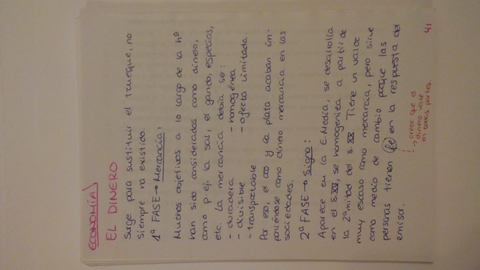 ECONOMÍA
EL DINERO
Surge para sustituir el trueque, no
siempre ha existido.
1ª FASE → Mercancía:
Muchos objetivos a lo largo de la hª
han sido considerados como dinero,
como p. ej. la sal, el ganado, especias,
etc. La mercancía debía ser:
- duradera
- homogénea
- divisible
- oferta limitada.
- transportable
Por eso, el oro y la plata acaban im-
poniéndose como dinero mercancía en las
sociedades.
2ª FASE → Signo:
Aparece en la E.Media, se desarrolla
en el s. XVI, se homogeneiza a partir de
la 2ª mitad del s. XX. Tiene un valor
muy escaso como mercancía, pero sirve
como medio de cambio porque las
personas tienen fe en la respuesta del
emisor.
creer que el
dinero vale
en otras partes
41